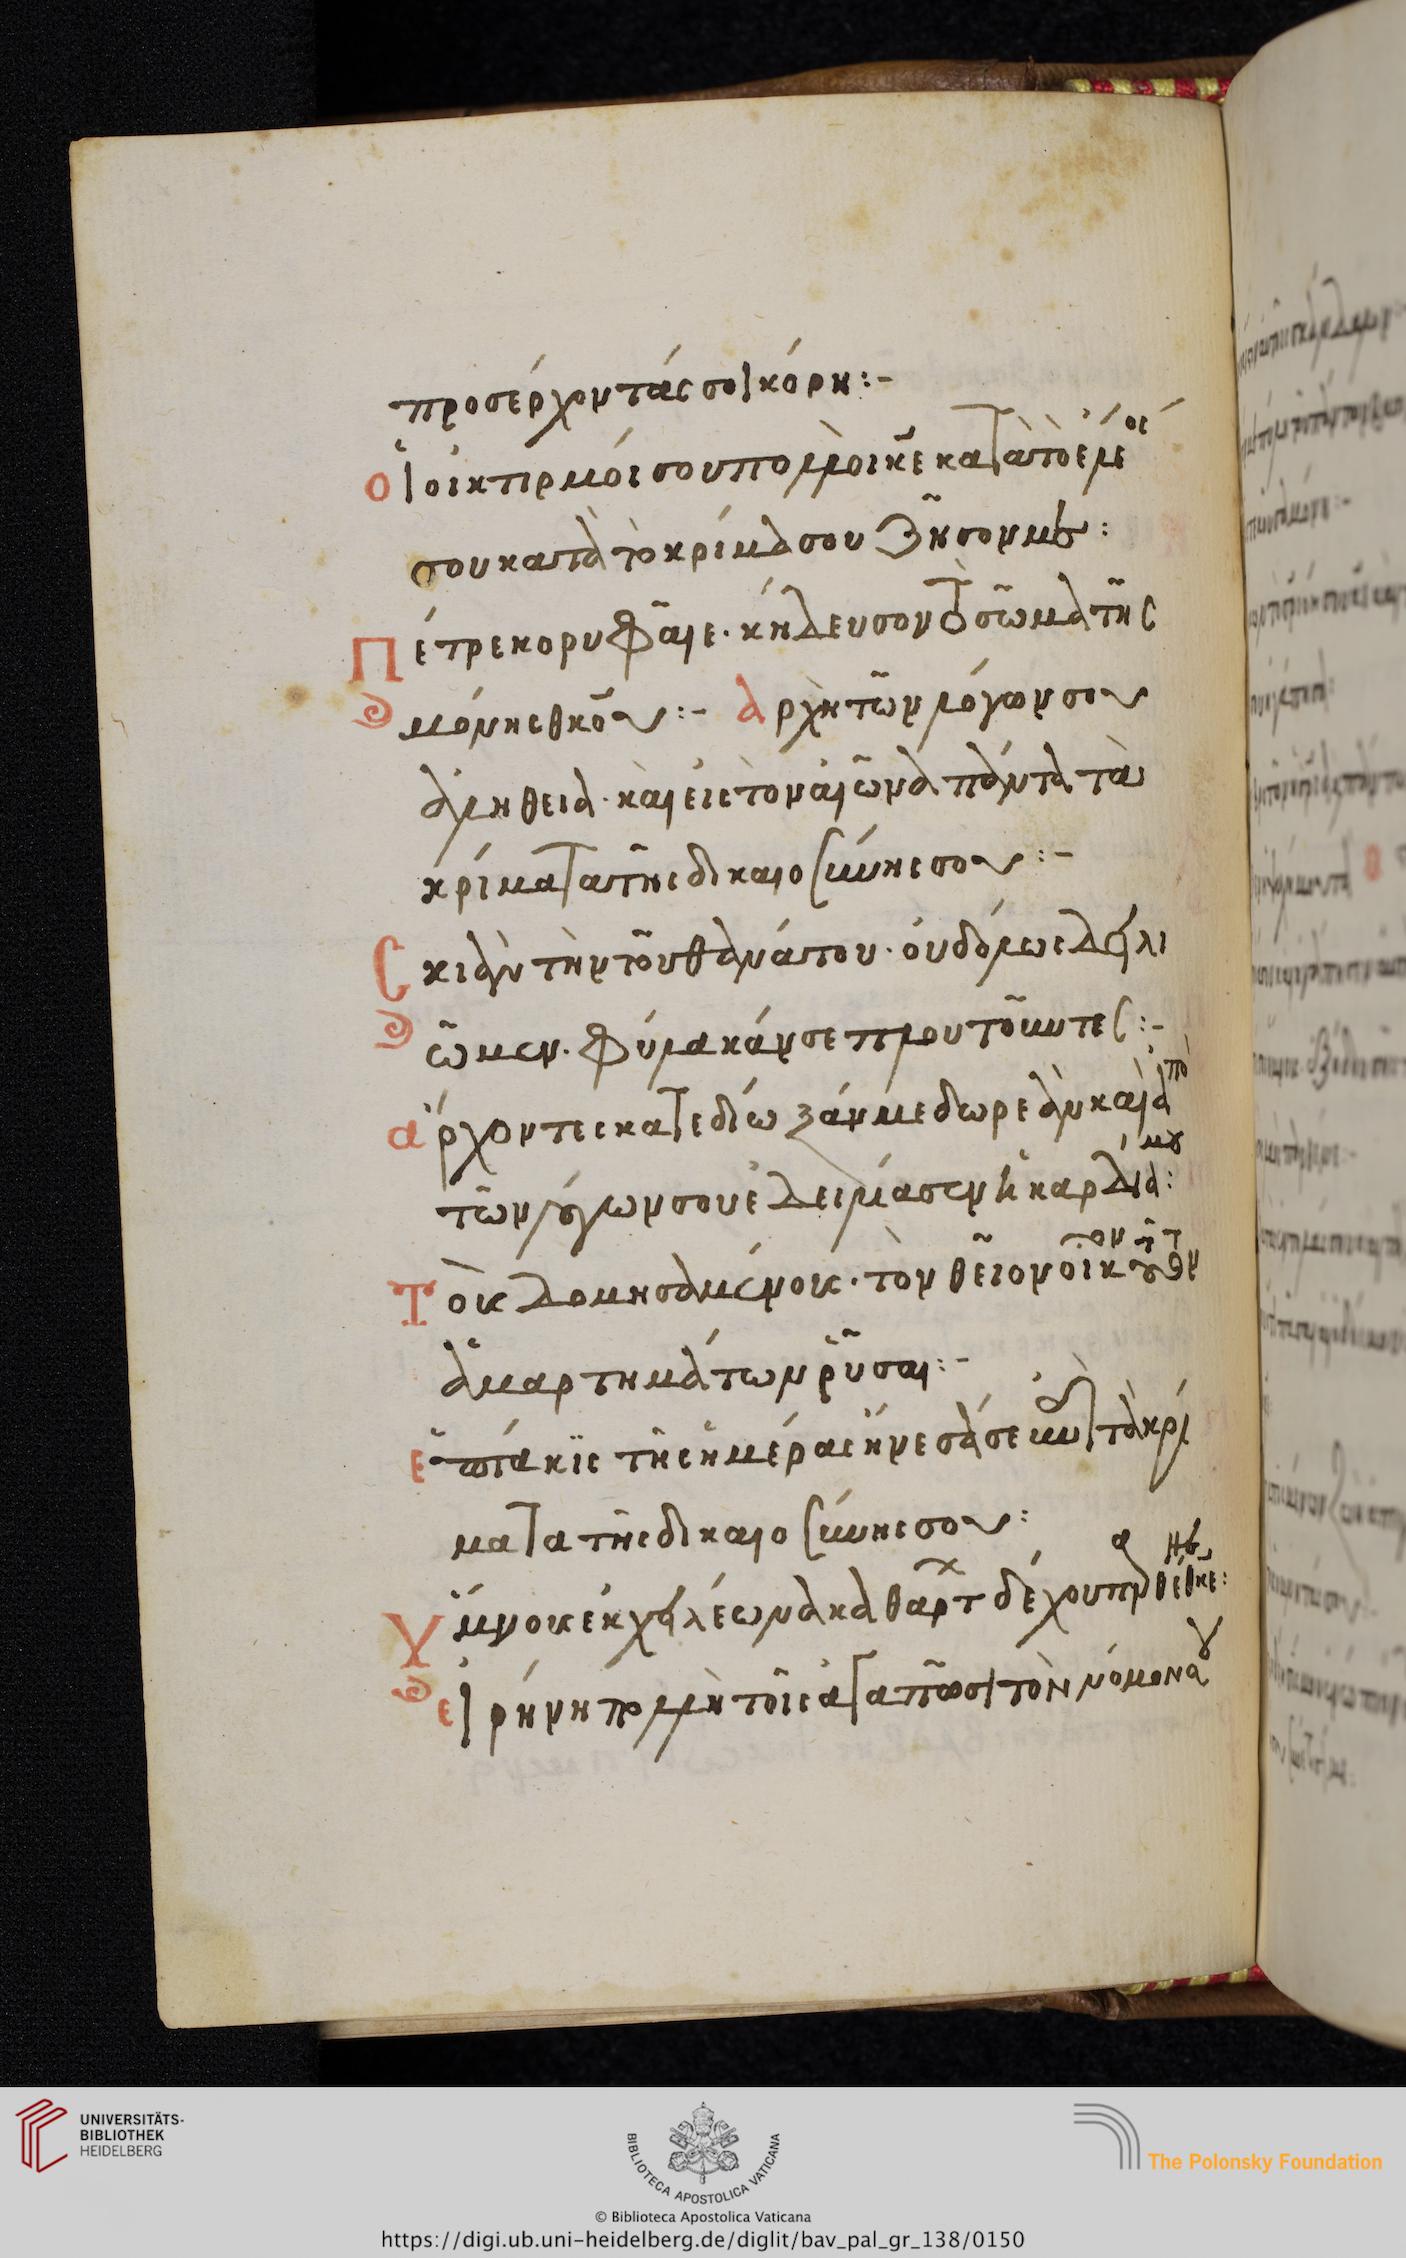 προσέρχοντάς σοι κόρη:-
Οἱ οἰκτιρμοί σου πολλοὶ κ̅ε κατὰ τὸ ἔλεός
σου κατὰ τὸ κρίμα σου ζῆσον με:
Πέτρε κορυφαῖε· κήδευσον τὸ σῶμα τῆς
μόνης θ̅κου:- Ἀρχὴ τῶν λόγων σου
ἀλήθεια· καὶ εἰς τὸν αἰῶνα πάντα τὰ
κρίματα τῆς δικαιοσύνης σου:-
Σκιὰν τὴν τοῦ θανάτου· οὐδόλως δειλι
ῶμεν· φύλακάν σε πλουτοῦντες:-
Ἄρχοντες κατεδίωξάν με δωρεὰν καὶ ἀπὸ
τῶν λόγων σου ἐδειλίασεν ἡ καρδία μου:
Τοῖς δομησαμένοις· τὸν θεῖον οἶκον τοῦτον
ἁμαρτημάτων ῥῦσαι:-
Ἑπτάκις τῆς ἡμέρας ᾔνεσά σε ἐπὶ τὰ κρί
ματα τῆς δικαιοσύνης σου:
Ὕμνοις ἐκ χειλέων ἀκαθάρτων δέχου παρθένε θ̅κε:
Εἰρήνη πολλὴ τοῖς ἀγαπῶσι τὸν νόμον σου
UNIVERSITÄTS-
BIBLIOTHEK
HEIDELBERG
BIBLIOTECA APOSTOLICA VATICANA
© Biblioteca Apostolica Vaticana
The Polonsky Foundation
https://digi.ub.uni-heidelberg.de/diglit/bav_pal_gr_138/0150